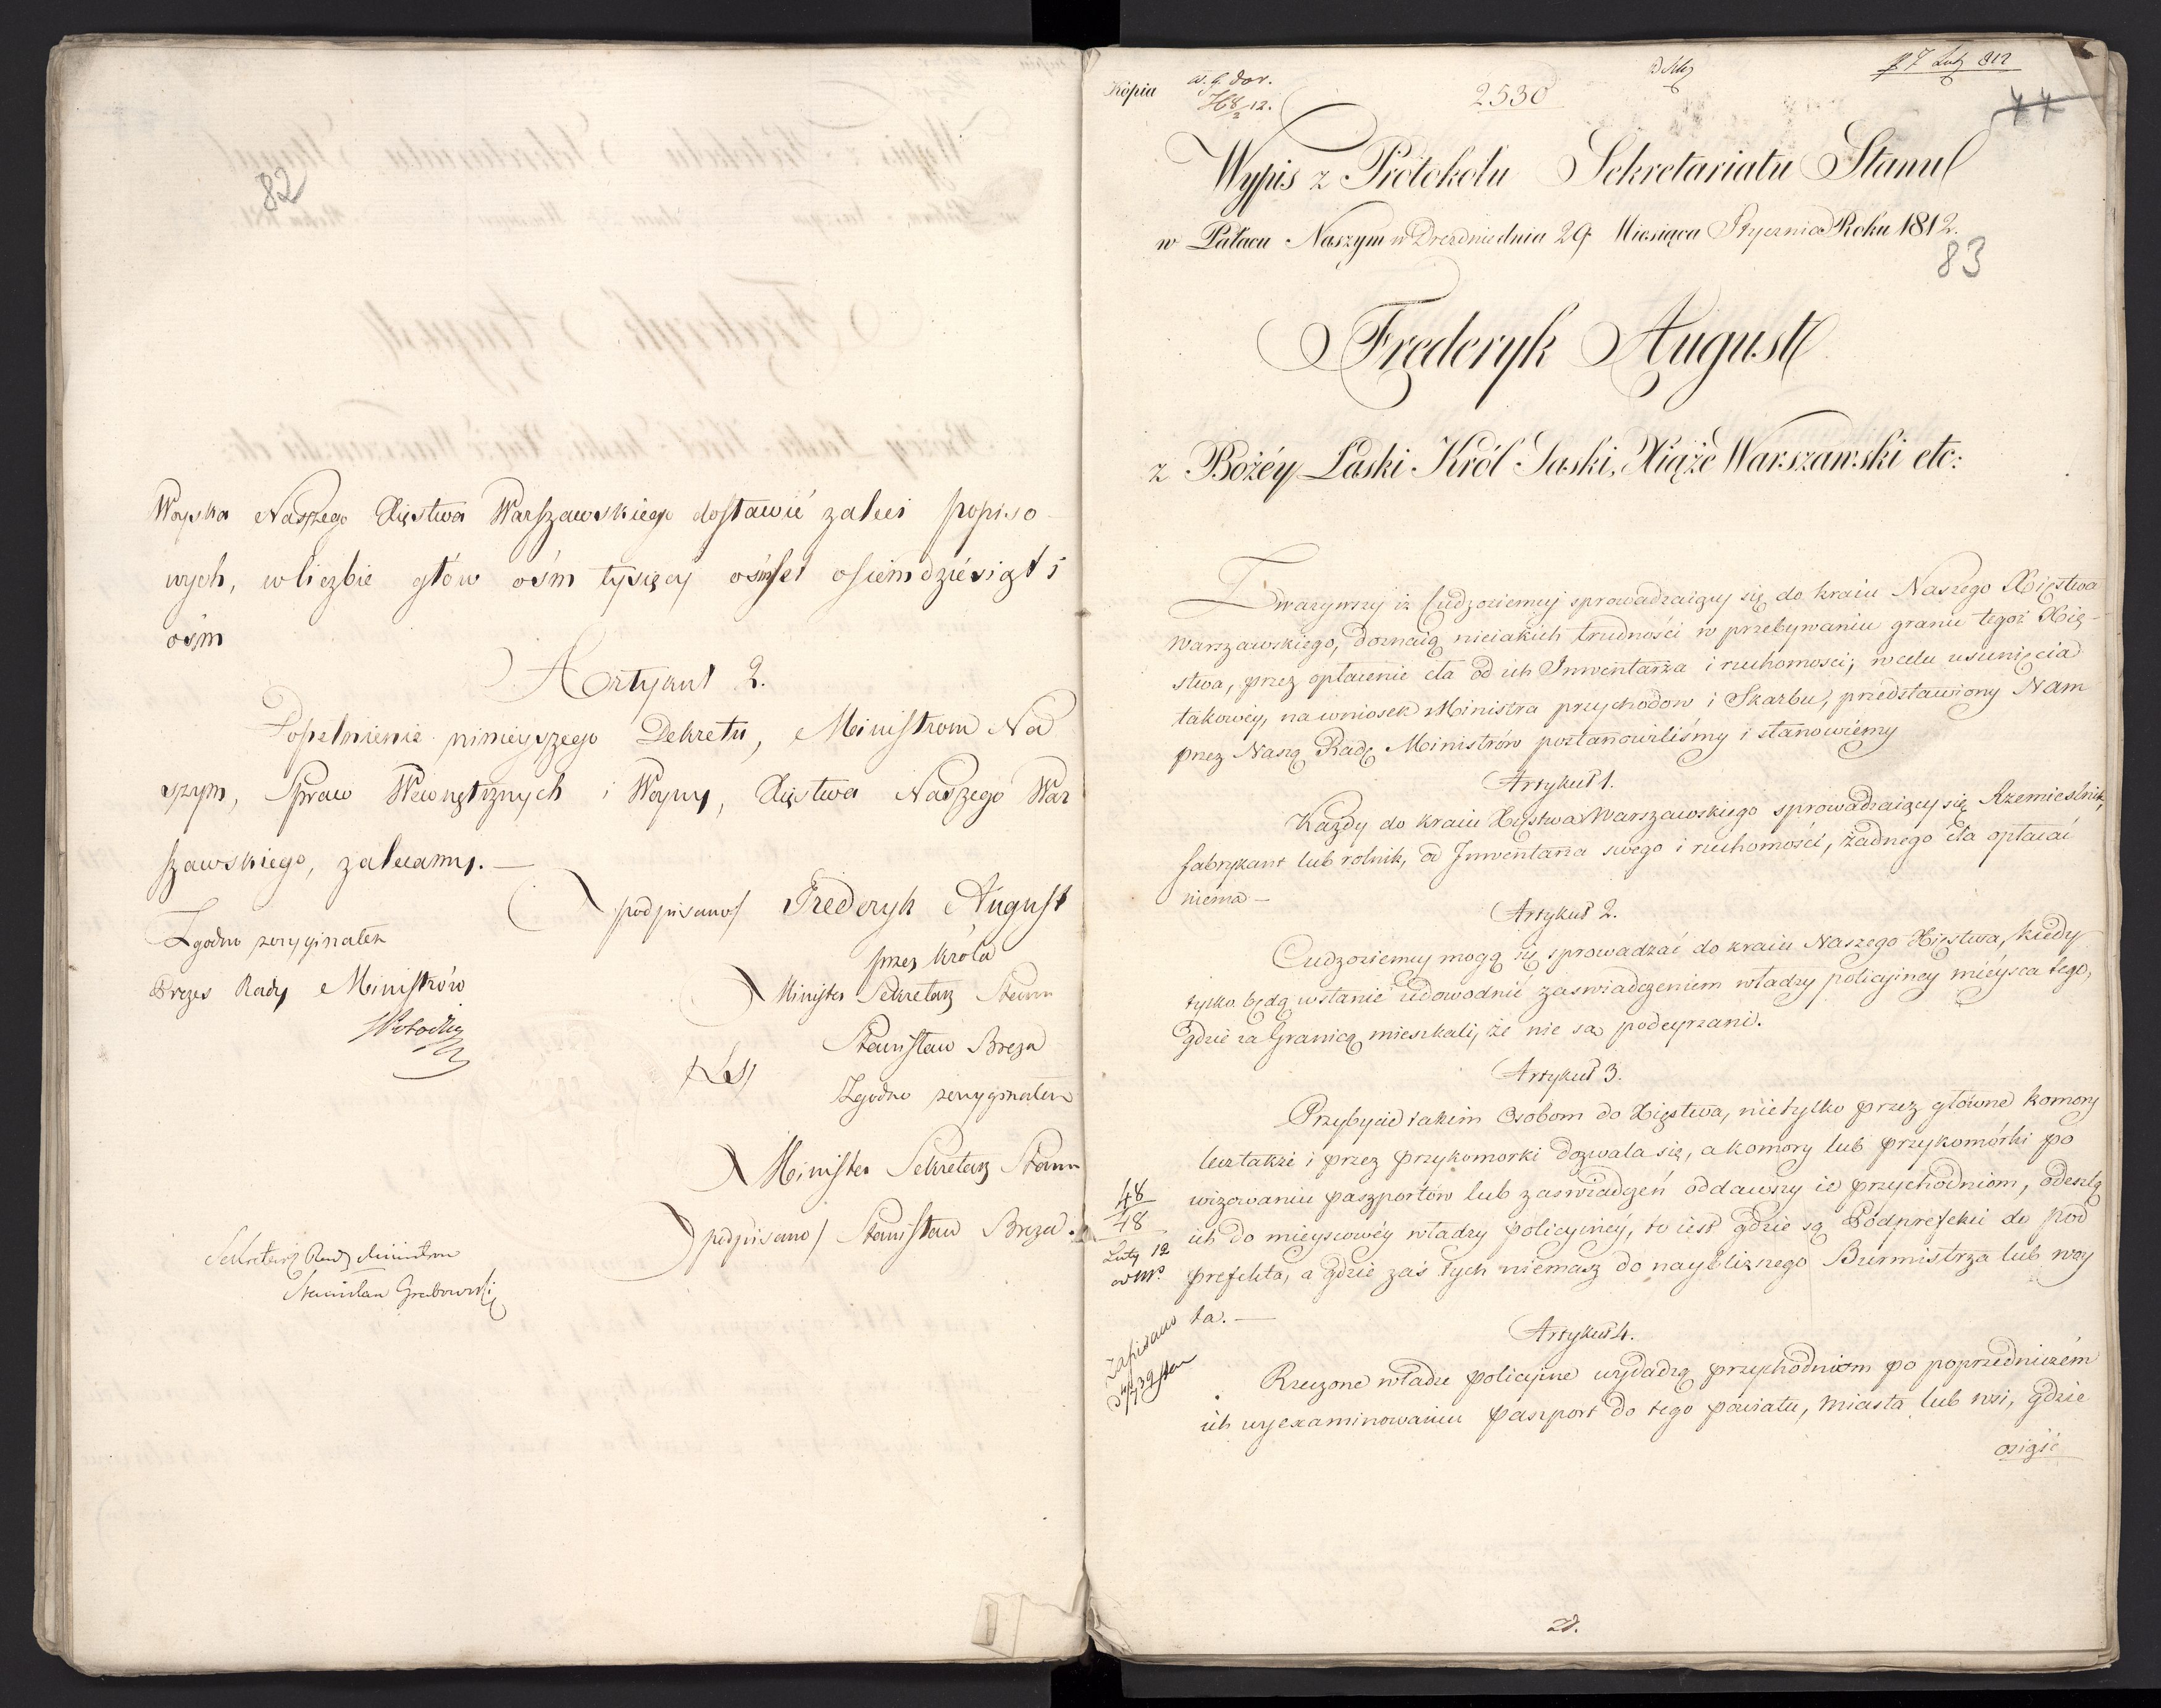 82
Woyska Naszego Xięstwa Warszawskiego dostawić zaleci popiso-
wych, w liczbie głów ośm tysięcy ośmset osiemdziesiąt i
ośm
Artykuł 2.
Dopełnienie ninieyszego Dekretu, Ministrom Na
szym, Spraw Wewnętrznych i Woyny, Xięstwa Naszego War
szawskiego, zalecamy. —
podpisano/ Frederyk August
przez Króla
Minister Sekretarz Stanu
Stanisław Breza
/LS/
Zgodno z oryginałem
Minister Sekretarz Stanu
podpisano/ Stanisław Breza.
Zgodno z oryginałem
Prezes Rady Ministrów
Potocki
Sekretarz Rady Ministrów
Stanisław Grabowski
Kopia
2530
27 Luty 812
44
Wypis z Protokołu Sekretariatu Stanu
w Pałacu Naszym w Dreznie dnia 29. Miesiąca Stycznia Roku 1812.
83
Frederyk August
z Bożéy Łaski Król Saski, Xiąże Warszawski etc:
Zważywszy iż Cudzoziemcy sprowadzaiący się do kraiu Naszego Xięstwa
Warszawskiego, doznaią nieiakich trudności w przebywaniu granic tegoż Xię-
stwa, przez opłacenie cła od ich Inwentarza i ruchomości; w celu usunięcia
takowéy, na wniosek Ministra przychodow i Skarbu, przedstawiony Nam
przez Naszą Radę Ministrów postanowiliśmy i stanowiemy
Artykuł 1.
Każdy do kraiu Xięstwa Warszawskiego sprowadzaiący się Rzemieslnik,
fabrykant lub rolnik, od Inwentarza swego i ruchomości, żadnego cła opłacać
niema —
Artykuł 2.
Cudzoziemcy mogą się sprowadzać do kraiu Naszego Xięstwa, kiedy
tylko będą wstanie udowodnić zaswiadczeniem władzy policyiney mieysca tego,
gdzie za Granicą mieszkali, że nie są podeyrzani.
Artykuł 3.
Przybycie takim Osobom do Xięstwa, nietylko przez główne komory
lecz także i przez przykomorki dozwala się, a komory lub przykomórki po
wizowaniu paszportów lub zaswiadczeń oddawszy ie przychodniom, odeszlą
ich do mieyscowéy władzy policyinéy, to iest gdzie są Podprefekci do pod
prefekta, a gdzie zaś tych niemasz do naybliznego Burmistrza lub woy
ta. —
48
48
Luty 12
Zapisano
Artykuł 4.
Rzeczone władze policyine wydadzą przychodniom po poprzedniczém
ich wyexaminowaniu paszport do tego powiatu, miasta lub wsi, gdzie
osiąść
28.